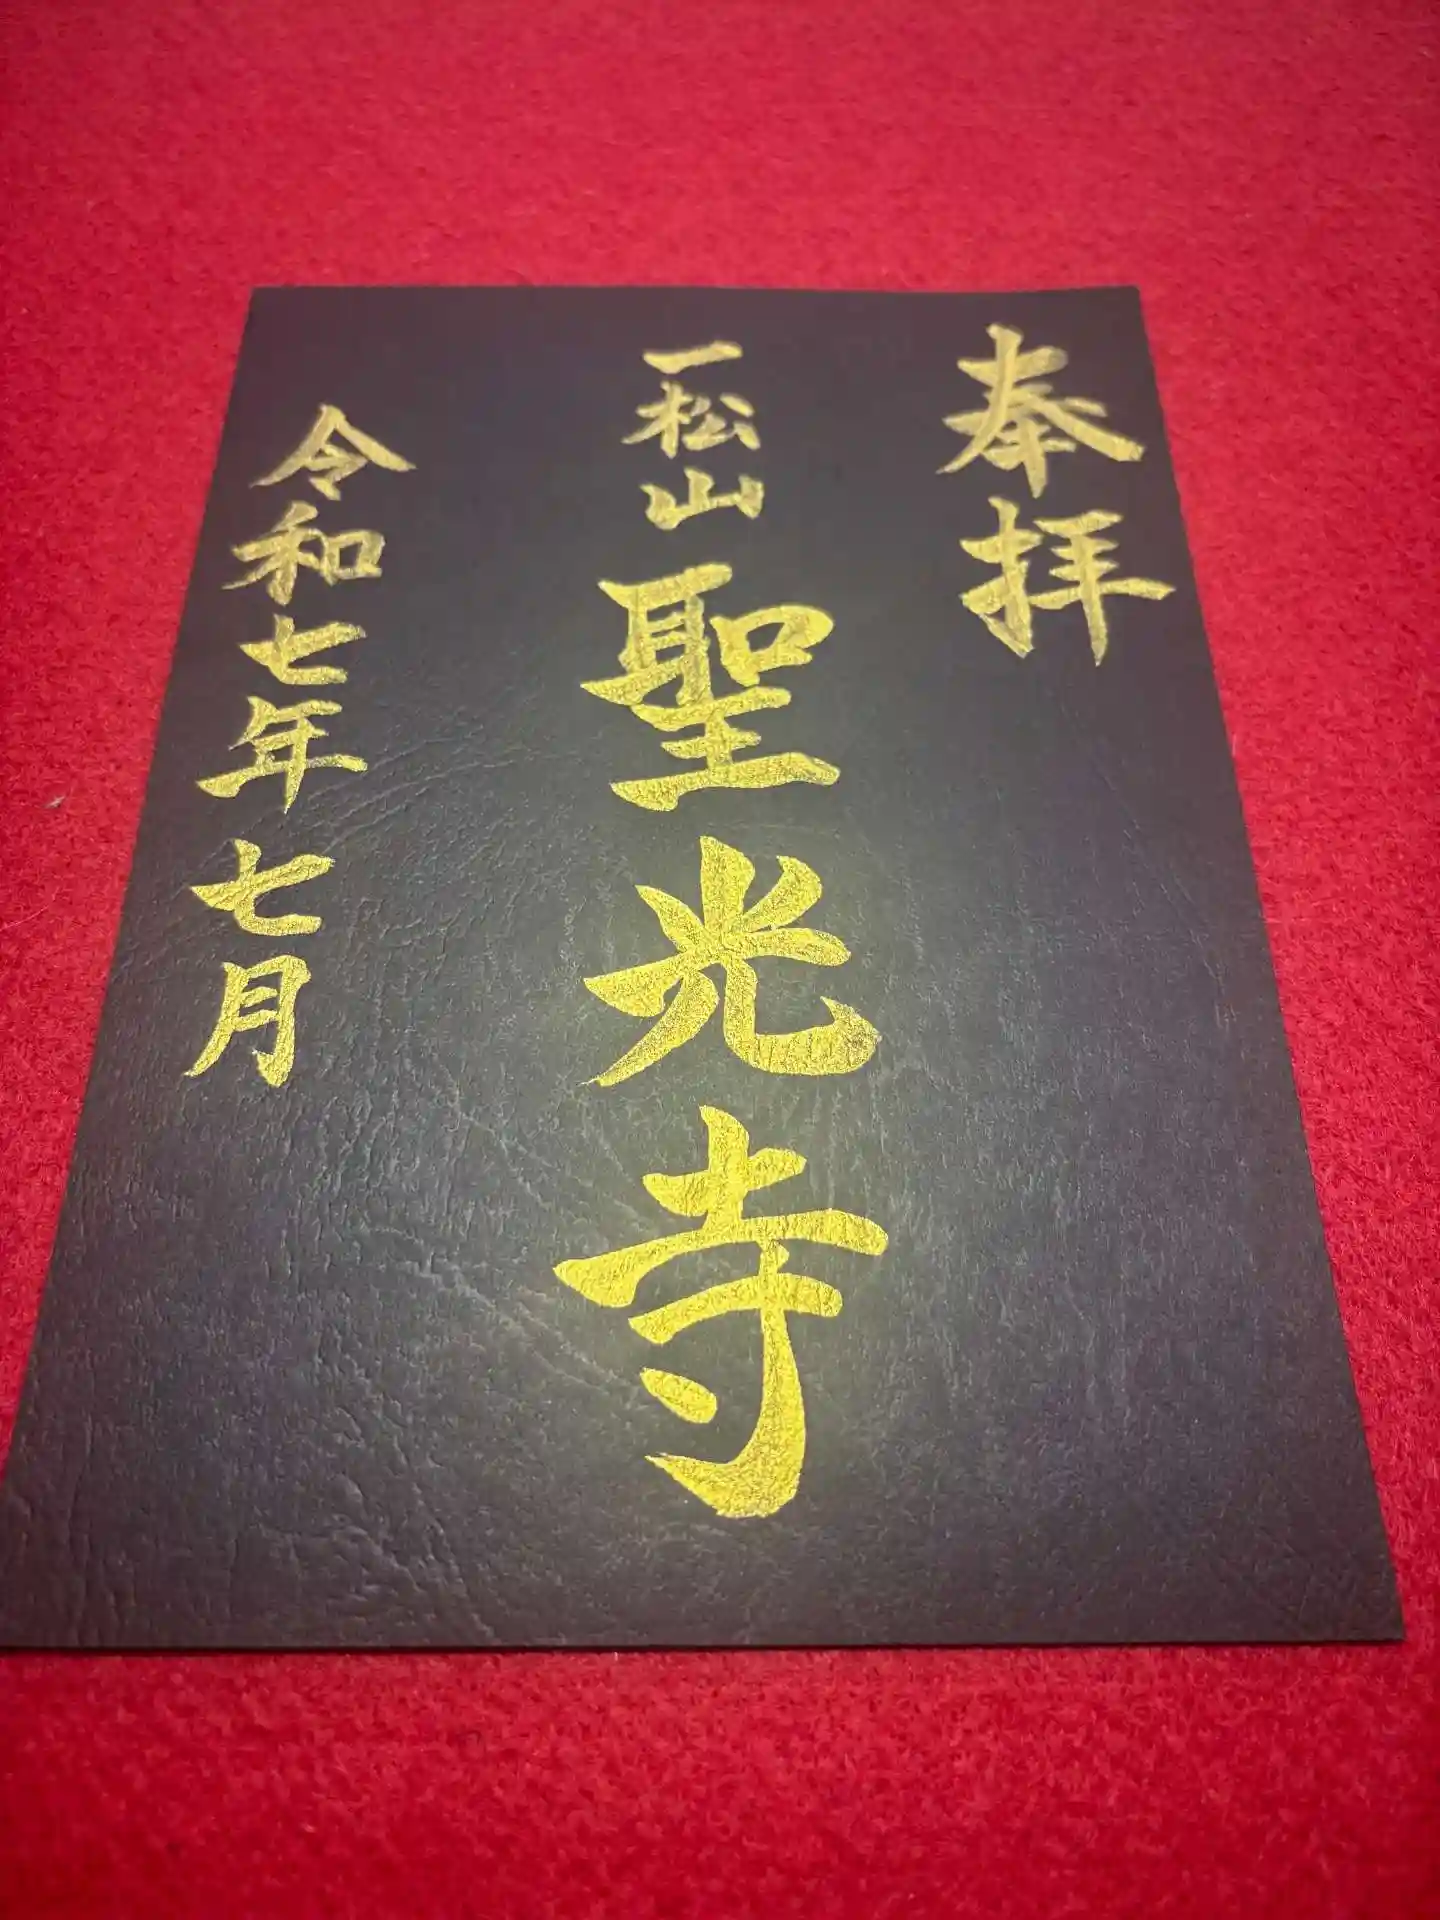 奉拝
一松山 聖光寺
令和七年 七月